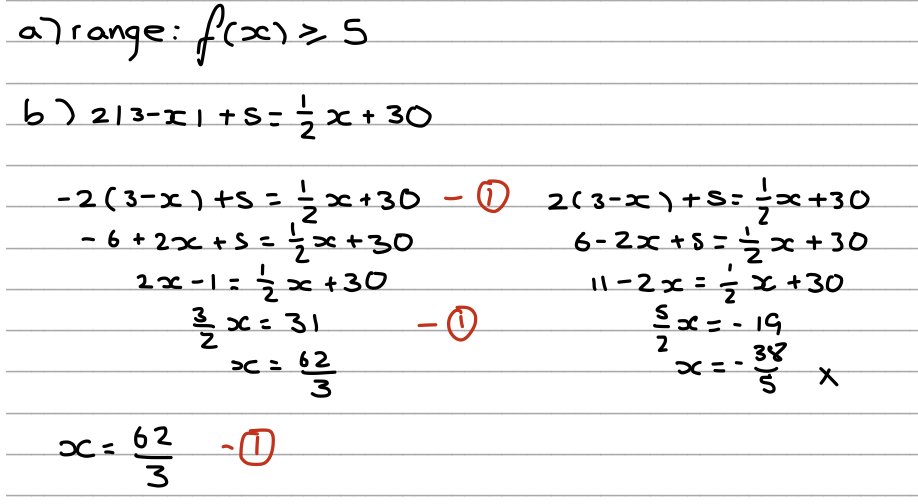 a) range: f(x) ≥ 5
b) 2|3-x| + 5 = 1/2 x + 30
-2(3-x) + 5 = 1/2 x + 30 - ①
-6 + 2x + 5 = 1/2 x + 30
2x - 1 = 1/2 x + 30
3/2 x = 31 - ①
x = 62/3
2(3-x) + 5 = 1/2 x + 30
6 - 2x + 5 = 1/2 x + 30
11 - 2x = 1/2 x + 30
5/2 x = -19
x = -38/5 ✗
x = 62/3 - ①